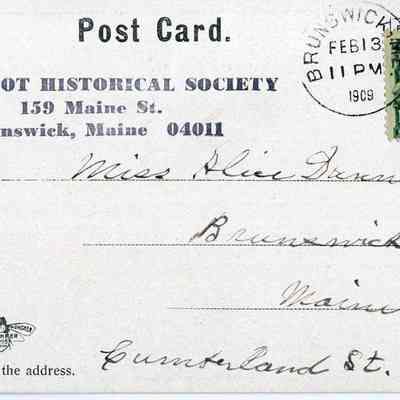 Post Card.
BRUNSWICK
FEB 13
11 PM
1909
OT HISTORICAL SOCIETY
159 Maine St.
nswick, Maine 04011
Miss Alice Dunn
Brunswick
Maine
Cumberland St.
the address.